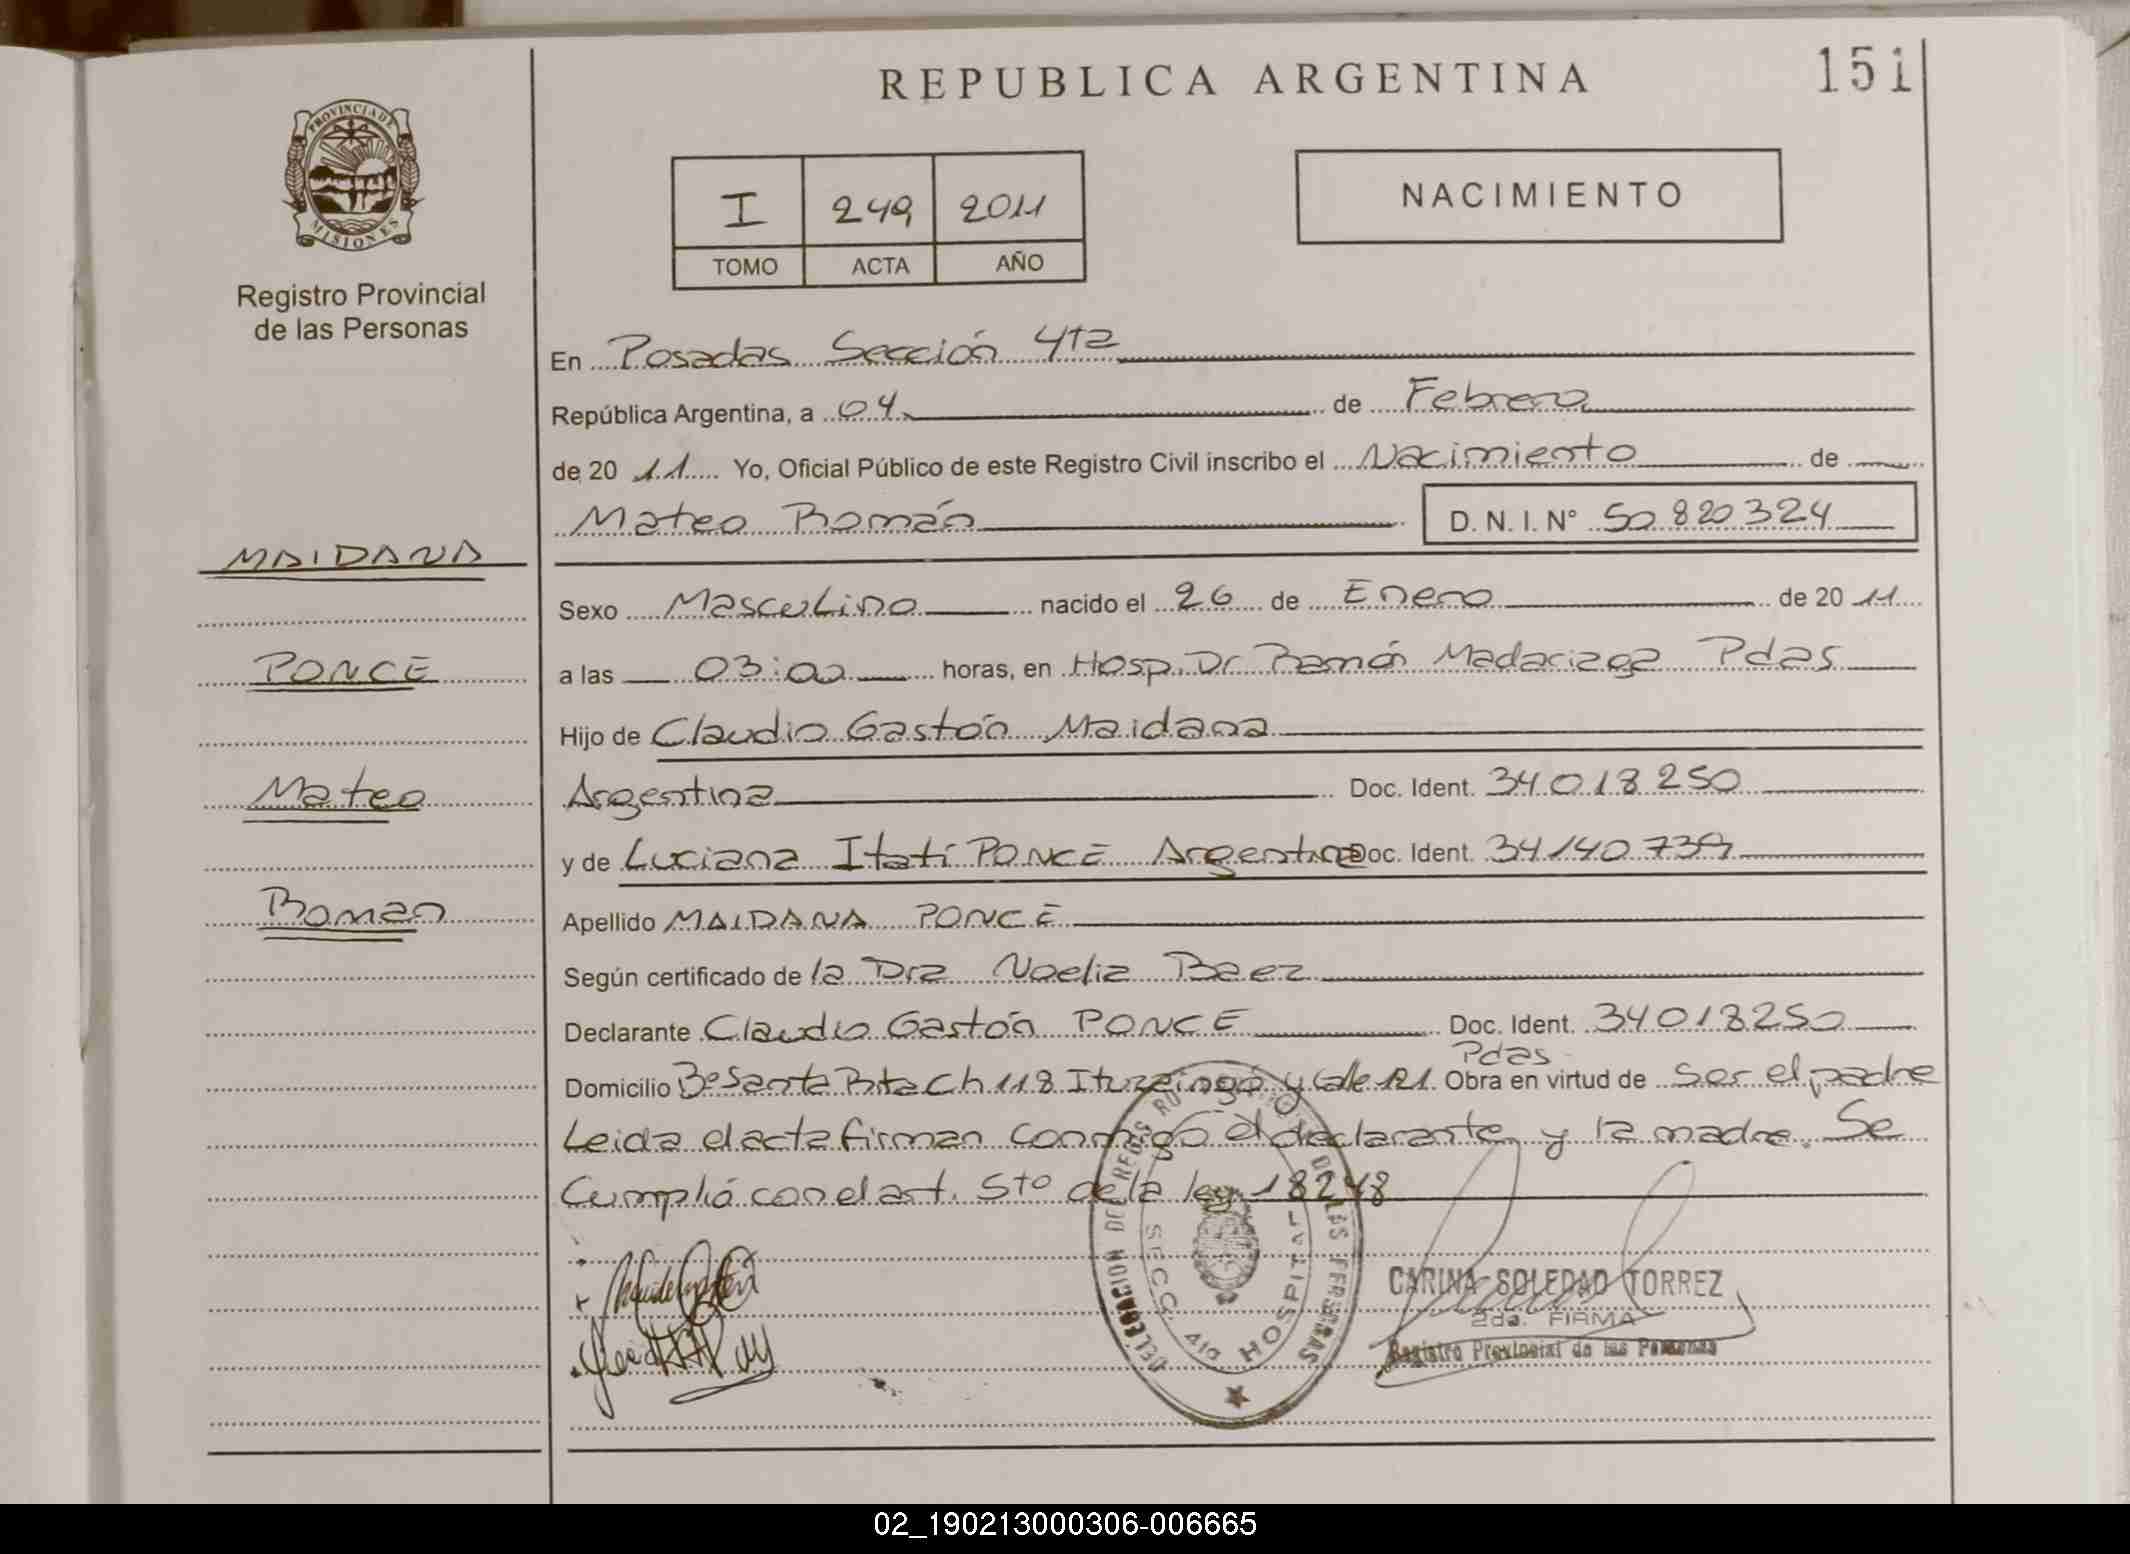 REPUBLICA ARGENTINA
151
PROVINCIA DE
MISIONES
Registro Provincial
de las Personas
I 249 2011
TOMO ACTA AÑO
NACIMIENTO
En Posadas Sección 4ta
República Argentina, a 04 de Febrero
de 20 11 Yo, Oficial Público de este Registro Civil inscribo el Nacimiento de
Mateo Román D. N. I. N° 50 820 324
MAIDANA
PONCE
Mateo
Roman
Sexo Masculino nacido el 26 de Enero de 20 11
a las 03:00 horas, en Hosp. Dr Ramón Madariaga Pdas
Hijo de Claudio Gastón Maidana
Argentina Doc. Ident. 34 018 250
y de Luciana Itatí PONCE Argentina Doc. Ident. 34 140 739
Apellido MAIDANA PONCE
Según certificado de la Dra Noelia Baez
Declarante Claudio Gastón PONCE Doc. Ident. 34018250
Pdas
Domicilio B° Santa Rita Ch 118 Ituzaingó y Calle 121 Obra en virtud de ser el padre
Leida el acta firman conmigo el declarante y la madre. Se
Cumplió con el art. 5to de la ley 18248
DELEGACION DEL REG
DE LAS PERSONAS
SECC. 4ta HOSPITAL
CARINA SOLEDAD TORREZ
2da. FIRMA
Registro Provincial de las Personas
02_190213000306-006665